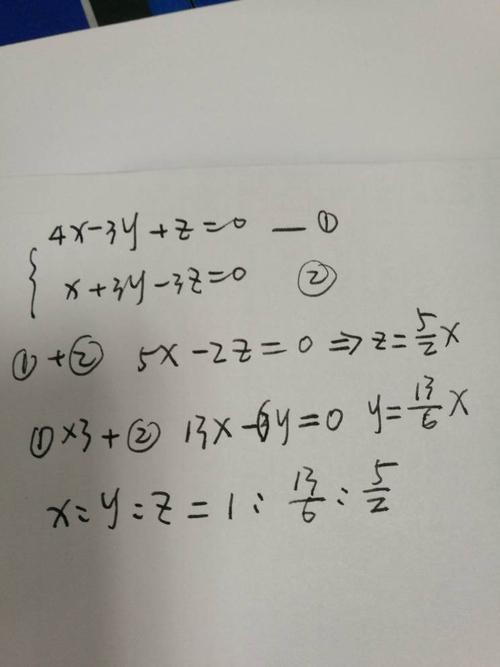 { 4x-3y+z=0 — ①
x+3y-3z=0 ②
①+② 5x-2z=0 ⇒ z=5/2 x
①×3+② 13x-6y=0 y=13/6 x
x:y:z=1:13/6:5/2